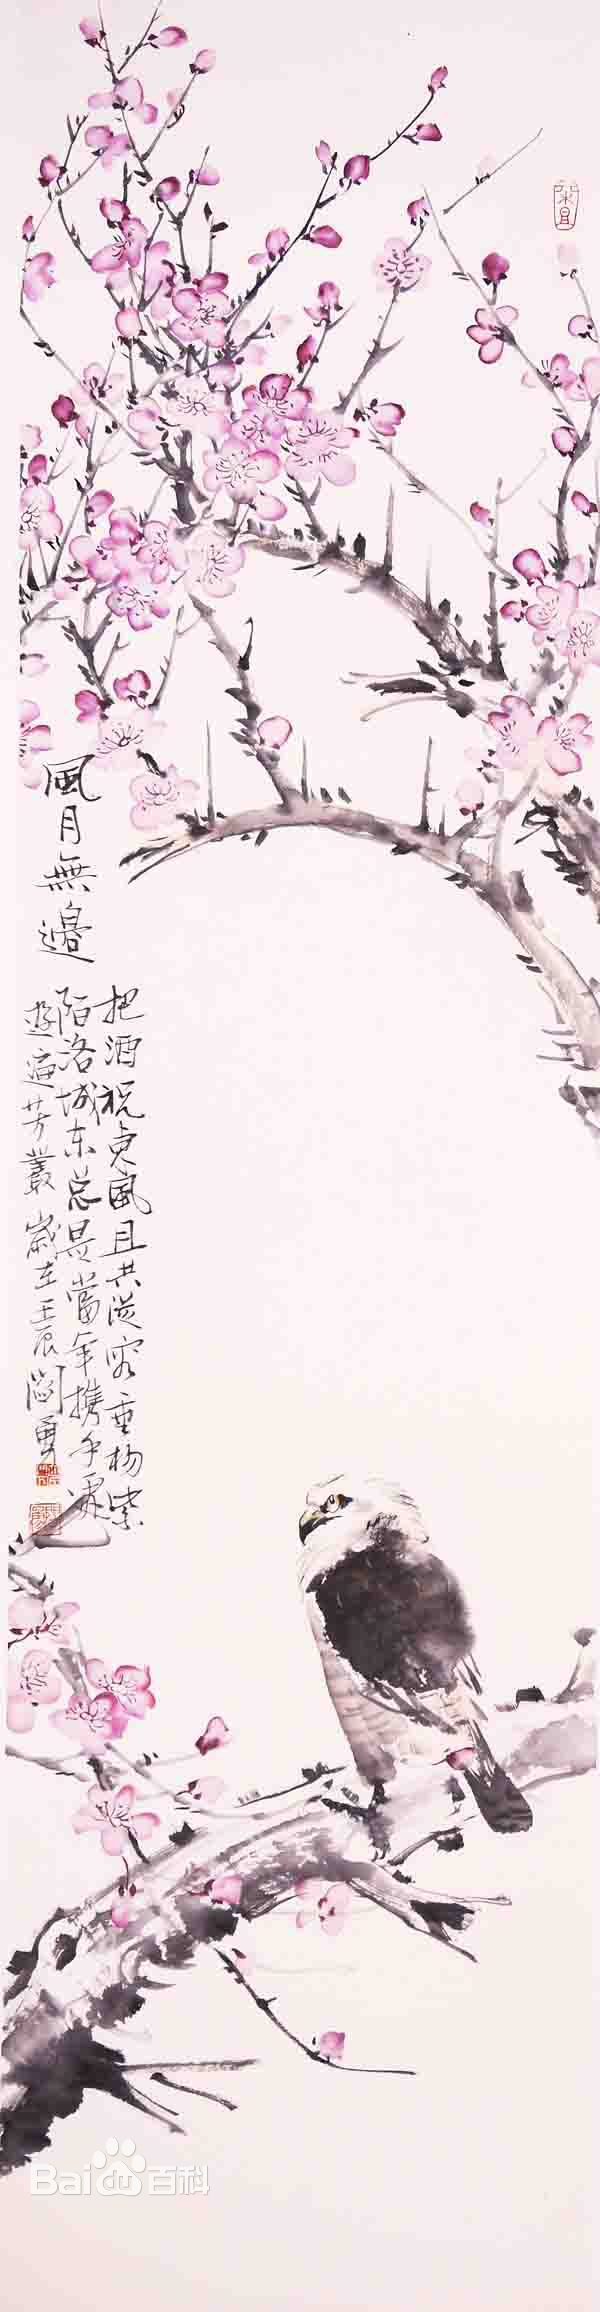 風月無邊
把酒祝東風且共從容垂杨紫
陌洛城东总是當年携手處
遊遍芳叢歲在壬辰閻勇
Bai百科